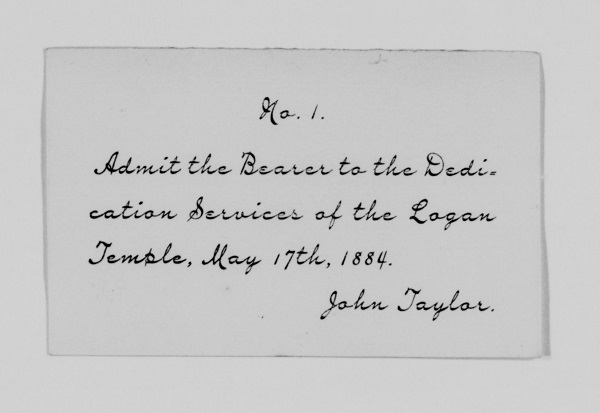 No. 1.
Admit the Bearer to the Dedi=
cation Services of the Logan
Temple, May 17th, 1884.
John Taylor.